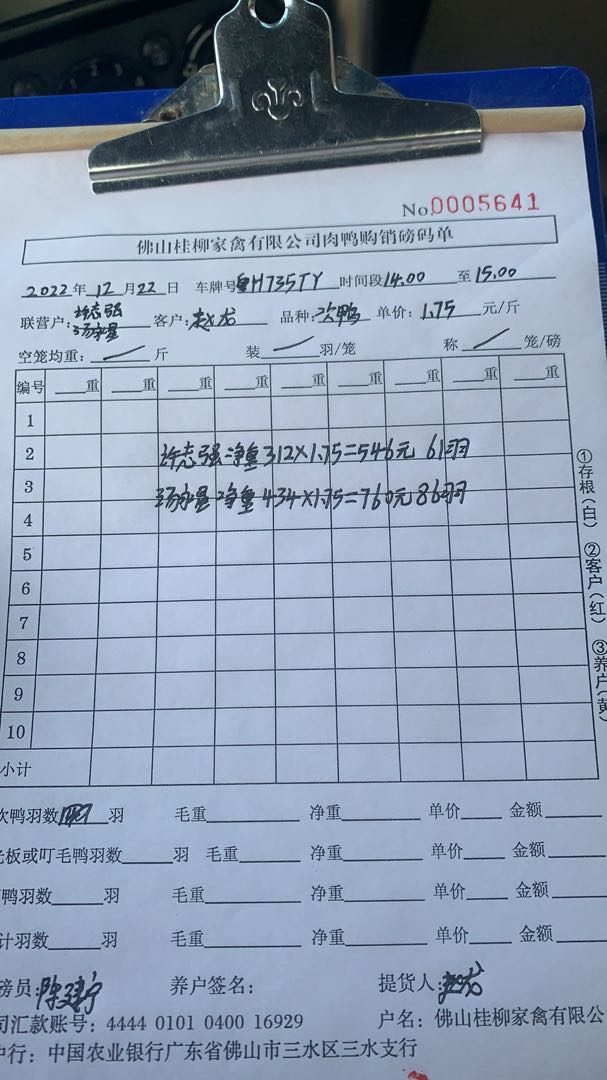 No.0005641
佛山桂柳家禽有限公司肉鸭购销磅码单
2022年 12月22日 车牌号H735TY 时间段14.00 至 15.00
许志强
联营户: 客户:赵龙 品种:次鸭 单价:1.75 元/斤
空笼均重: 斤 装 羽/笼 称 笼/磅
编号 重 重 重 重 重 重 重 重
1
2 许志强 净重312×1.75=546元 61羽
3 净重 434×1.75=760元 86羽
4
5
6
7
8
9
10
小计
①存根(白) ②客户(红) ③养户(黄
次鸭羽数 羽 毛重 净重 单价 金额
光板或叮毛鸭羽数 羽 毛重 净重 单价 金额
鸭羽数 羽 毛重 净重 单价 金额
计羽数 羽 毛重 净重 单价 金额
磅员: 养户签名: 提货人:赵龙
司汇款账号: 4444 0101 0400 16929 户名: 佛山桂柳家禽有限公
户行: 中国农业银行广东省佛山市三水区三水支行